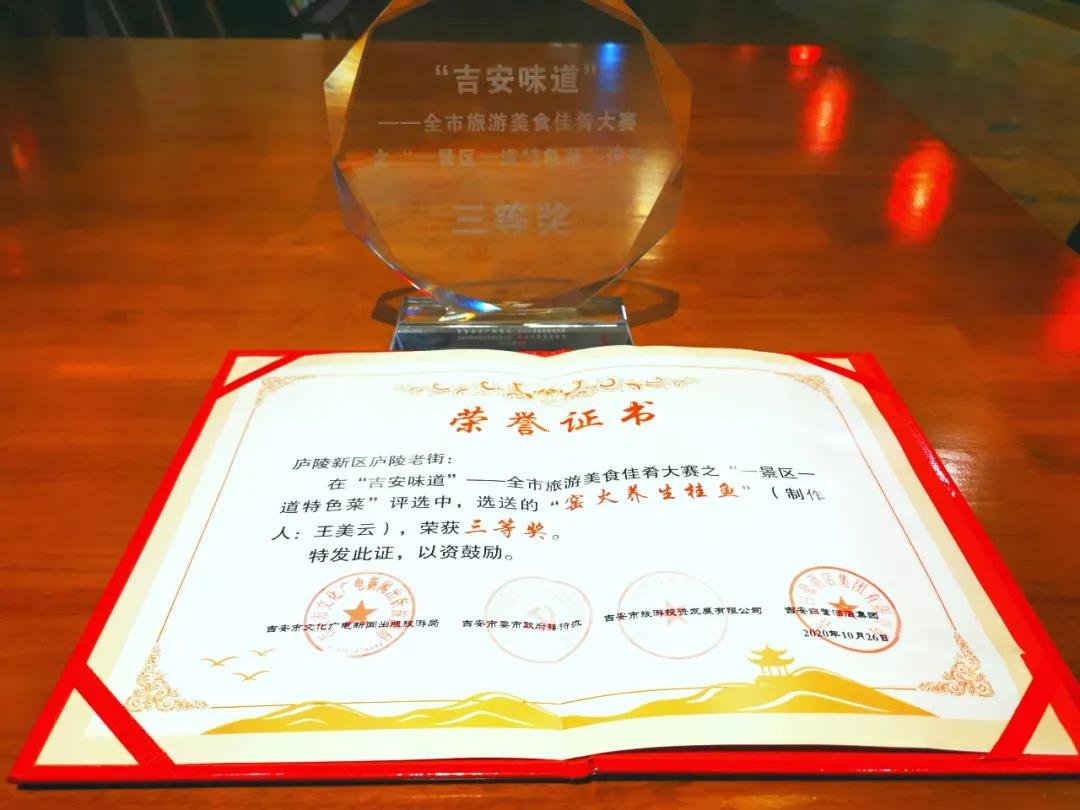 “吉安味道”
——全市旅游美食佳肴大赛
之“一景区一道特色菜”评选
三等奖
荣誉证书
庐陵新区庐陵老街：
在“吉安味道”——全市旅游美食佳肴大赛之“一景区一
道特色菜”评选中，选送的“窑火养生桂鱼”（制作
人：王美云），荣获三等奖。
特发此证，以资鼓励。
吉安市文化广电新闻出版旅游局
吉安市委市政府接待办
吉安市旅游投资发展有限公司
2020年10月26日